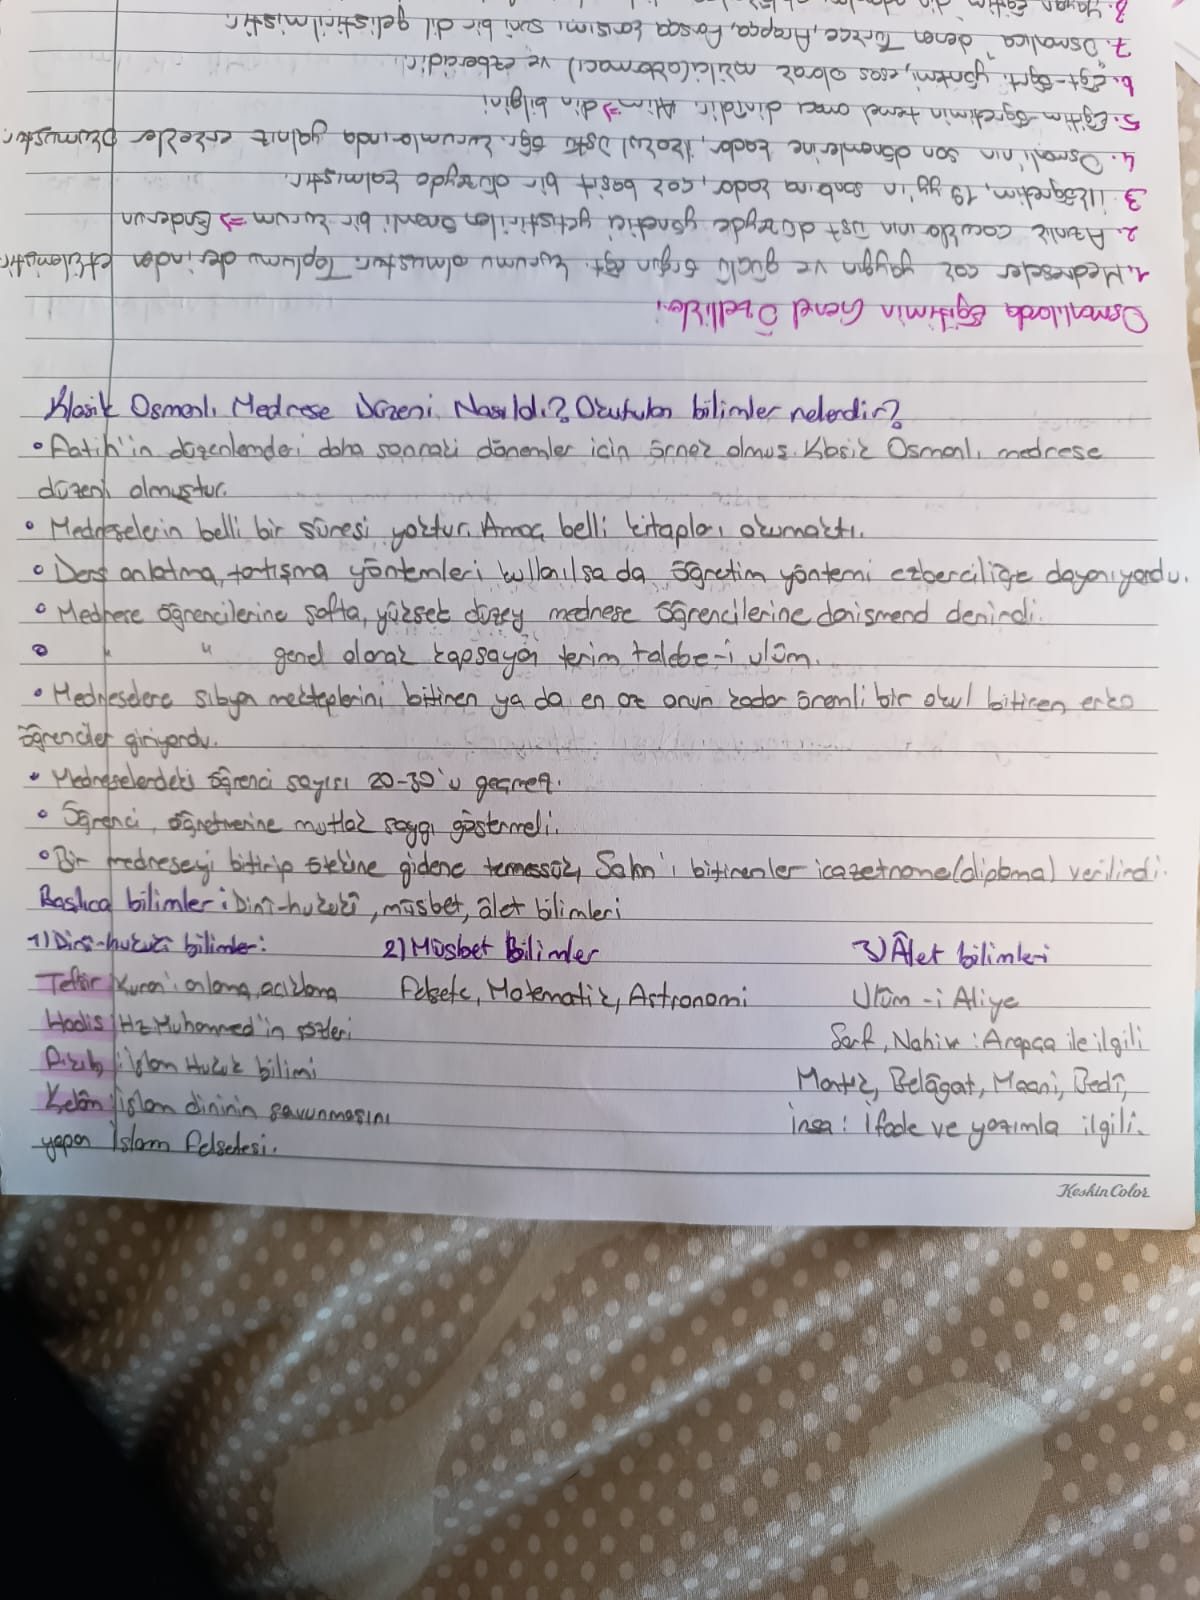 Klasik Osmanlı Medrese Düzeni Nasıldı? Okutulan bilimler nelerdir?
• Fatih'in düzenlemeleri daha sonraki dönemler için örnek olmuş. Klasik Osmanlı medrese
düzeni olmuştur.
• Medreselerin belli bir süresi yoktur. Amaç belli kitapları okumaktı.
• Ders anlatma, tartışma yöntemleri kullanılsa da öğretim yöntemi ezberciliğe dayanıyordu.
• Medrese öğrencilerine softa, yüksek düzey medrese öğrencilerine danişmend denirdi.
• " " genel olarak kapsayan terim talebe-i ulûm.
• Medreselere sıbyan mekteplerini bitiren ya da en az onun kadar önemli bir okul bitiren erke
öğrenciler giriyordu.
• Medreselerdeki öğrenci sayısı 20-30'u geçmez.
• Öğrenci, öğretmenine mutlak saygı göstermeli.
• Bir medreseyi bitirip ötekine gidene temessük, Sahn'ı bitirenler icazetname(diploma) verilirdi.
Başlıca bilimler: Dinî-hukukî, müsbet, âlet bilimleri
1) Dinî-hukukî bilimler: 2) Müsbet Bilimler 3) Âlet bilimleri
Tefsir Kuran'ı anlama, açıklama Felsefe, Matematik, Astronomi Ulûm-i Aliye
Hadis Hz Muhammed'in sözleri Sarf, Nahiv: Arapça ile ilgili
Fıkıh: islam Hukuk bilimi Mantık, Belâgat, Maani, Bedî,
Kelâm: islam dininin savunmasını inşa: İfade ve yazımla ilgili.
yapan İslam felsefesi.
KeskinColor
Osmanlılarda Eğitimin Genel Özellikleri
1. Medreseler çok yaygın ve güçlü örgün eğt. kurumu olmuştur. Toplumu derinden etkilemiştir.
2. Azınlık çocuklarının üst düzeyde yönetici yetiştirilen önemli bir kurum ⇒ Enderun
3. ilköğretim, 19. yy'ın sonlarına kadar, çok basit bir düzeyde kalmıştır.
4. Osmanlı'nın son dönemlerine kadar, ilkokul üstü öğr. kurumlarında yalnız erkekler okumuştur.
5. Eğitim-öğretimin temel amacı dinîdir. Alim ⇒ din bilgini
6. Eğt-öğrt. yöntemi, esas olarak nakilci(aktarmacı) ve ezbercidir.
7. "Osmanlıca" denen Türkçe, Arapça, Farsça karışımı suni bir dil geliştirilmiştir.